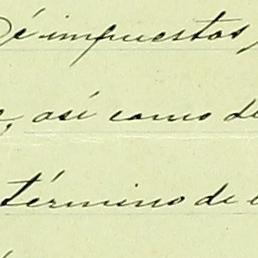 é impuestos,
así como de
término de